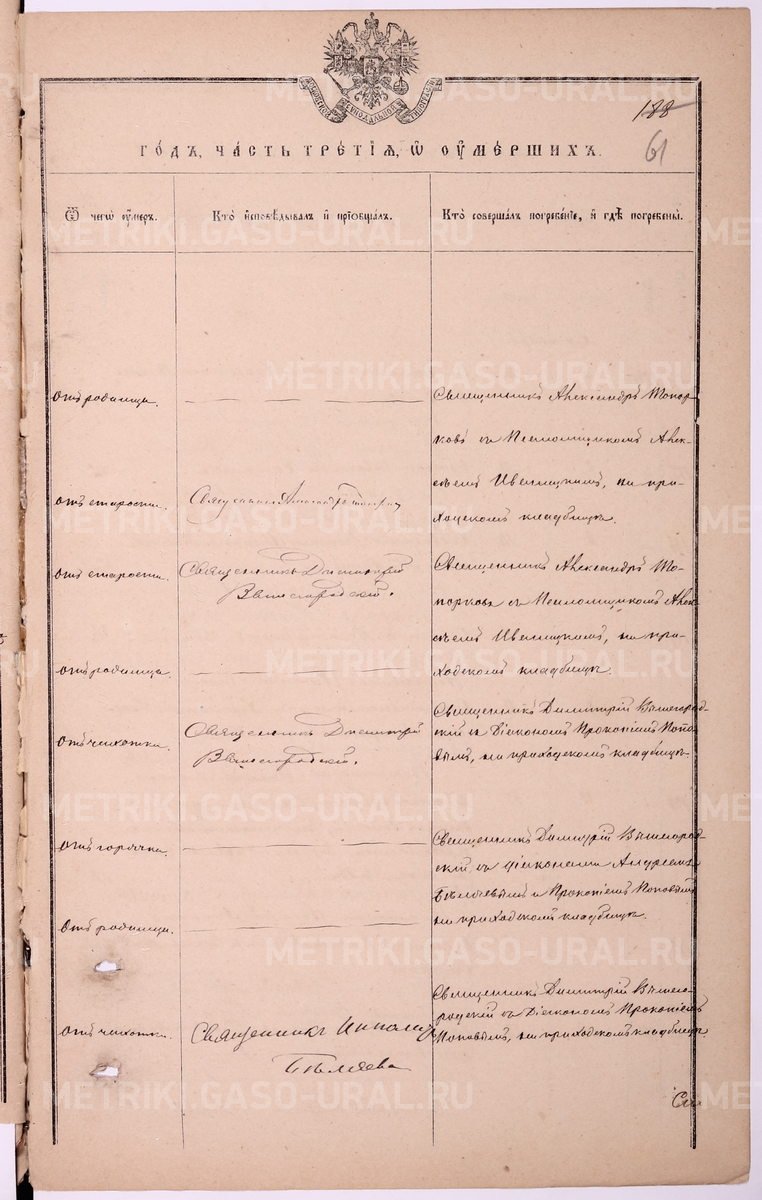 188
61
ГОДЪ, ЧАСТЬ ТРЕТІЯ, Ѿ ОУМЕРШИХЪ.
Ѿ чегѡ оумеръ.
Кто исповѣдывалъ и пріобщалъ.
Кто совершалъ погребеніе, и гдѣ погребены.
отъ родимца.
Священникъ Александръ Топор-
ковъ съ Псаломщикомъ Алек-
сѣемъ Иваницкимъ, на при-
ходскомъ кладбищѣ.
отъ старости.
Священникъ Александръ Топорковъ
отъ старости.
Священникъ Димитрій
Вышегородскій.
Священникъ Александръ То-
порковъ съ Псаломщикомъ Алек-
сѣемъ Иваницкимъ, на при-
ходскомъ кладбищѣ.
отъ родимца.
отъ чахотки.
Священникъ Димитрій
Вышегородскій.
Священникъ Димитрій Вышегород-
скій съ Діакономъ Прокопіемъ Попо-
вымъ, на приходскомъ кладбищѣ.
отъ горячки.
Священникъ Димитрій Вышегород-
скій съ діаконами Андреемъ
и Прокопіемъ Поповымъ
на приходскомъ кладбищѣ.
отъ родимца.
отъ чахотки.
Священникъ
Бѣляевъ
Священникъ Димитрій Вышего-
родскій съ Діакономъ Прокопіемъ
Поповымъ, на приходскомъ кладбищѣ.
METRIKI.GASO-URAL.RU